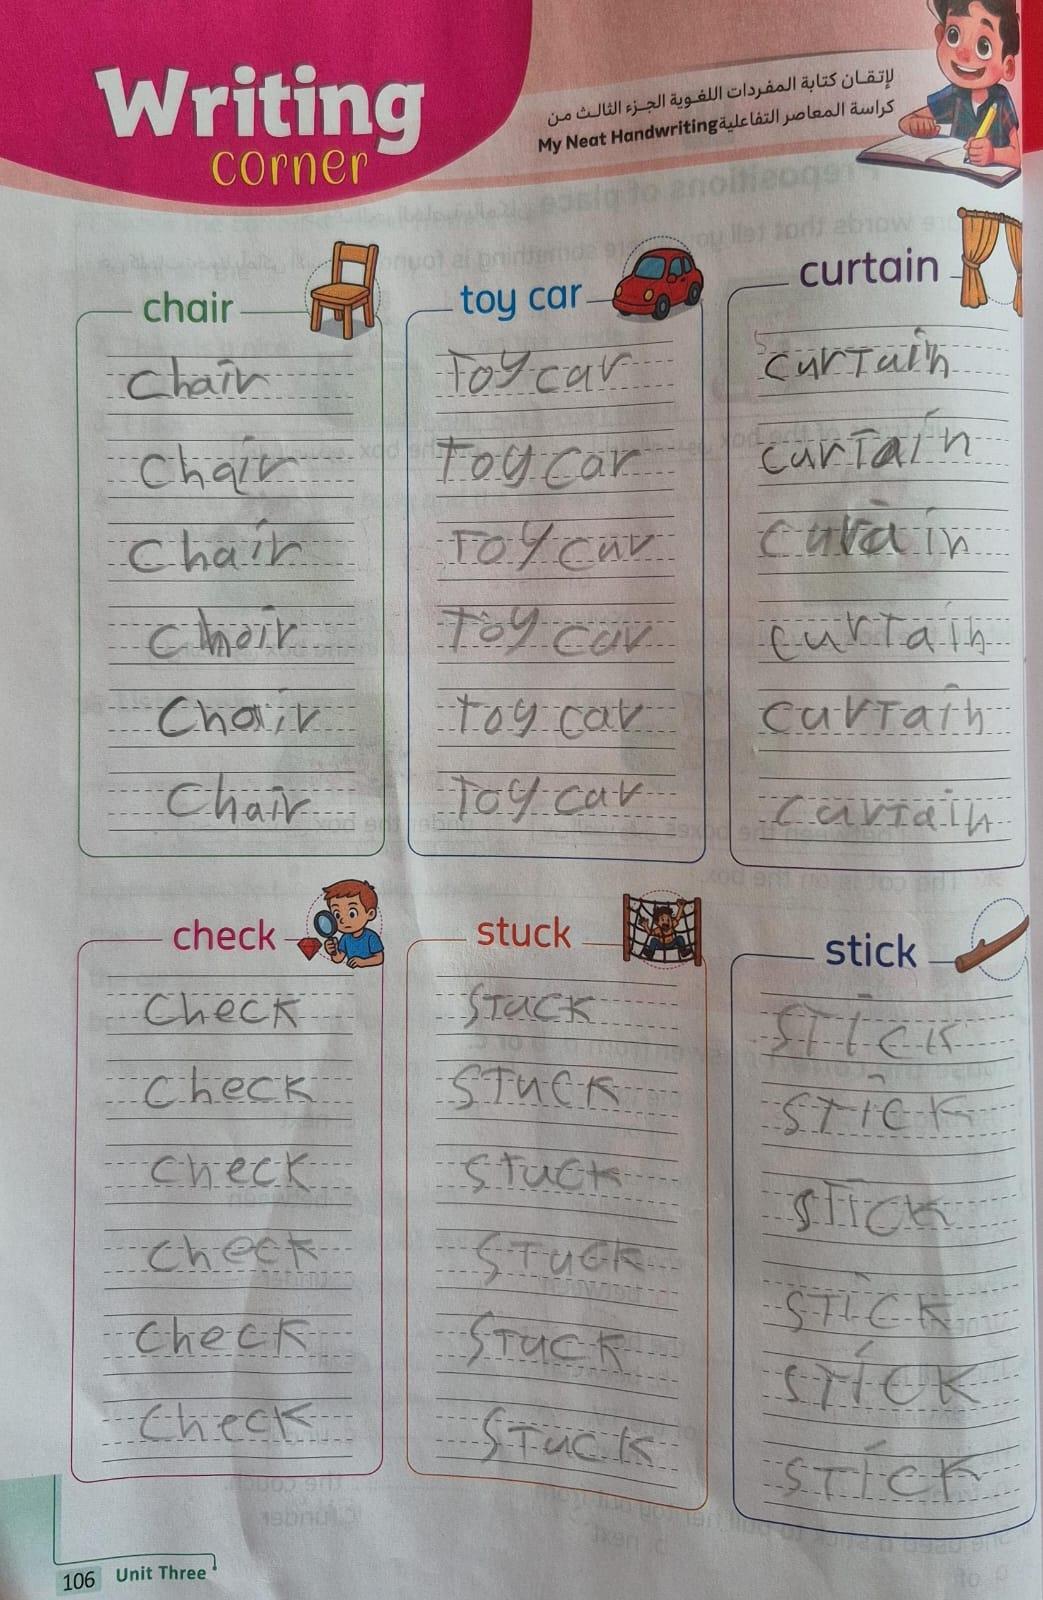 Writing
corner
لإتقان كتابة المفردات اللغوية الجزء الثالث من
كراسة المعاصر التفاعلية My Neat Handwriting
chair
Chair
Chair
Chair
Chair
Chair
Chair
toy car
Toy car
Toy car
Toy car
Toy car
Toy car
Toy car
curtain
curTain
curTain
curain
curTain
curTain
curTain
check
CheCK
CheCK
CheCK
CheCK
CheCK
CheCK
stuck
STuCK
STuCK
STuCK
STuCK
STuCK
STuCK
stick
STiCK
STiCK
STiCK
STiCK
STiCK
STiCK
106 Unit Three